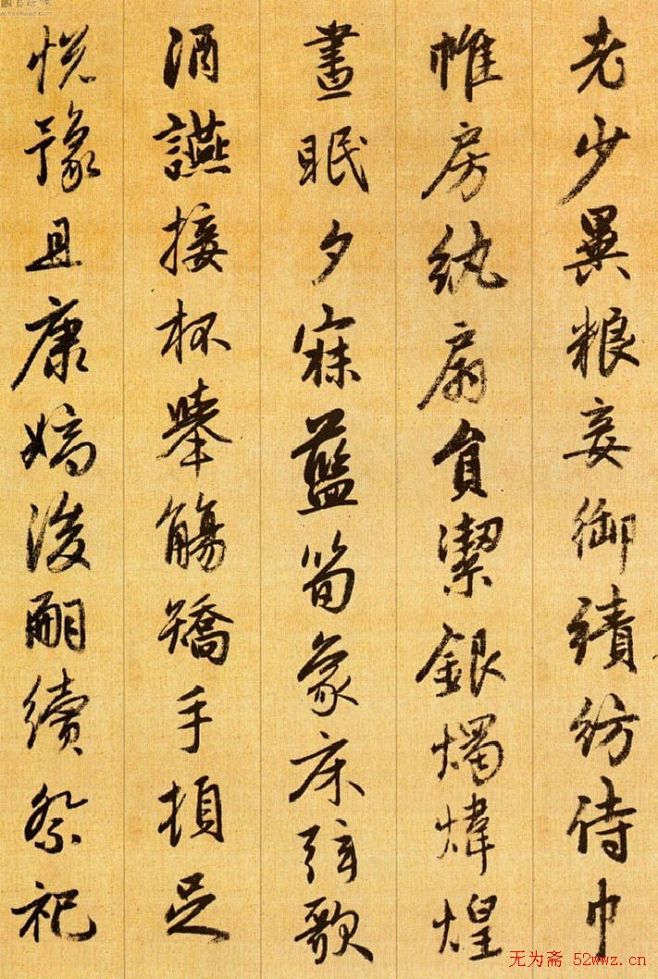 老少異粮妾御績紡侍巾
帷房紈扇員潔銀燭煒煌
晝眠夕寐藍筍象床弦歌
酒讌接杯舉觴矯手頓足
悅豫且康嫡後嗣續祭祀
无为斋 52wwz.cn